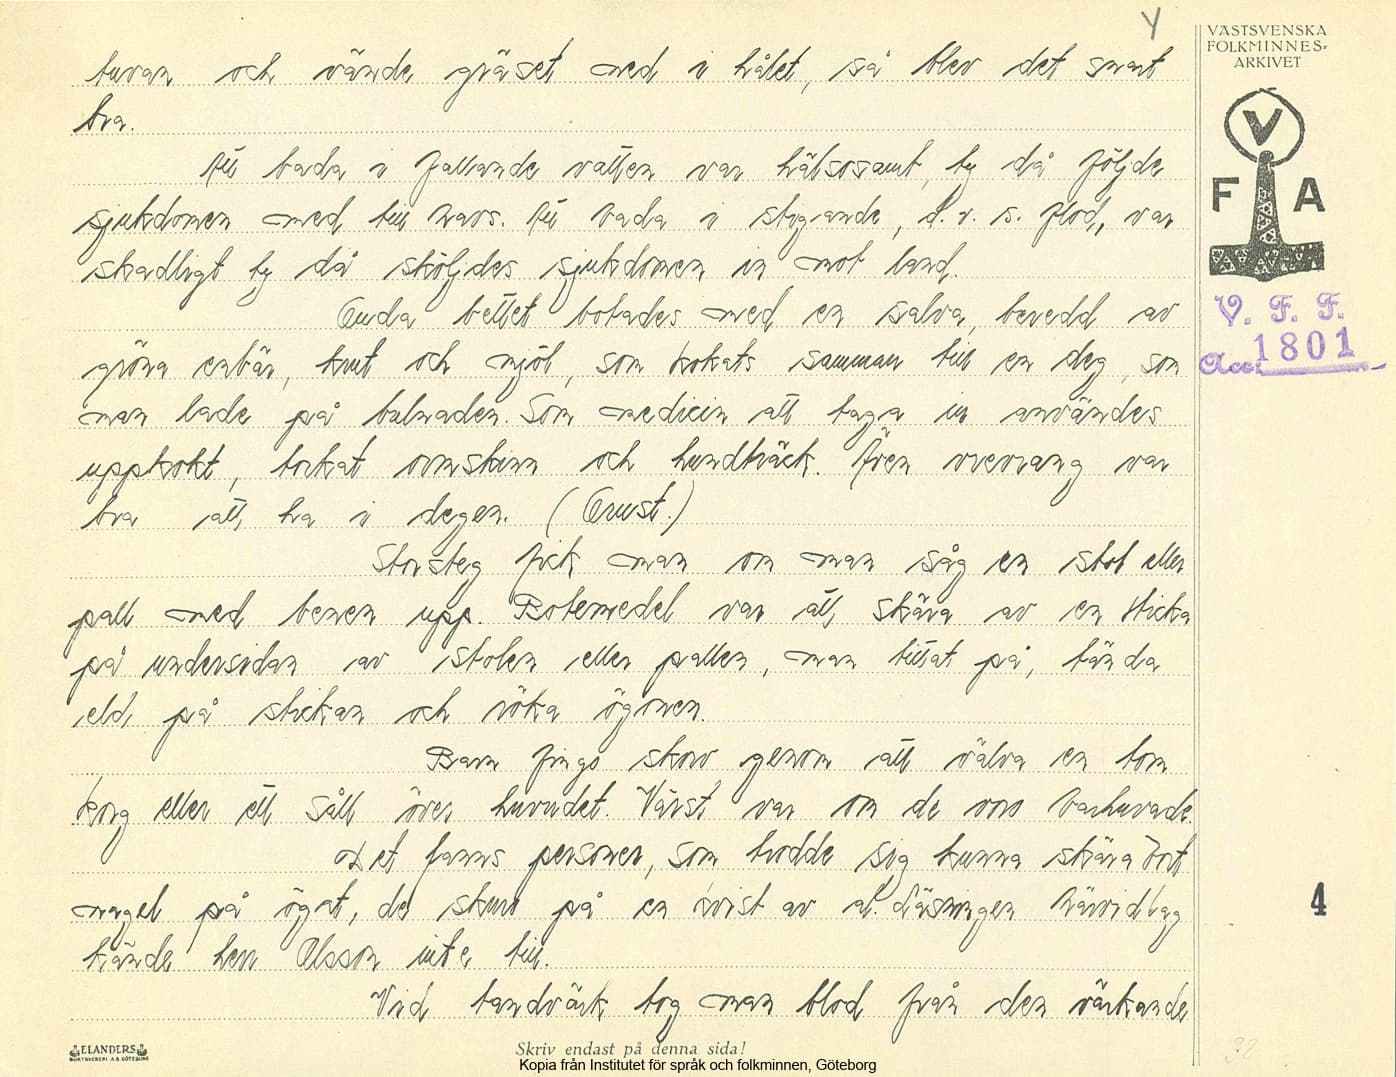 4
VÄSTSVENSKA
FOLKMINNES-
ARKIVET
V
F A
V. F. F.
Acc. 1801
tuvan och vände gräset ned i hålet, så blev det snart
bra.
Att bada i fallande vatten var hälsosamt, ty då följde
sjukdomen med till havs. Att bada i stigande, d. v. s. flod, var
skadligt ty då sköljdes sjukdomen in mot land.
Onda bettet botades med en salva, beredd av
gröna enbär, krut och mjöl, som kokats samman till en deg, som
man lade på bulnaden. Som medicin att taga in användes
uppkokt, torkat ormskinn och hundträck. Även vrevrang var
bra att ha i degen. (Ernst.)
Storsteg fick man om man såg en stol eller
pall med benen upp. Botemedel var att skära av en sticka
på undersidan av stolen eller pallen, man tittat på, tända
eld på stickan och röka ögonen.
Barn fingo skorv genom att välva en tom
korg eller ett såll över huvudet. Värst var om de voro barhuvade.
Det fanns personer, som trodde sig kunna skära bort
nagel på ögat, de skuro på en kvist av al. Läsningen härvidlag
kände herr Olsson inte till.
Vid tandvärk tog man blod från den värkande
4
32
ELANDERS
BOKTRYCKERI A.B. GÖTEBORG
Skriv endast på denna sida!
Kopia från Institutet för språk och folkminnen, Göteborg